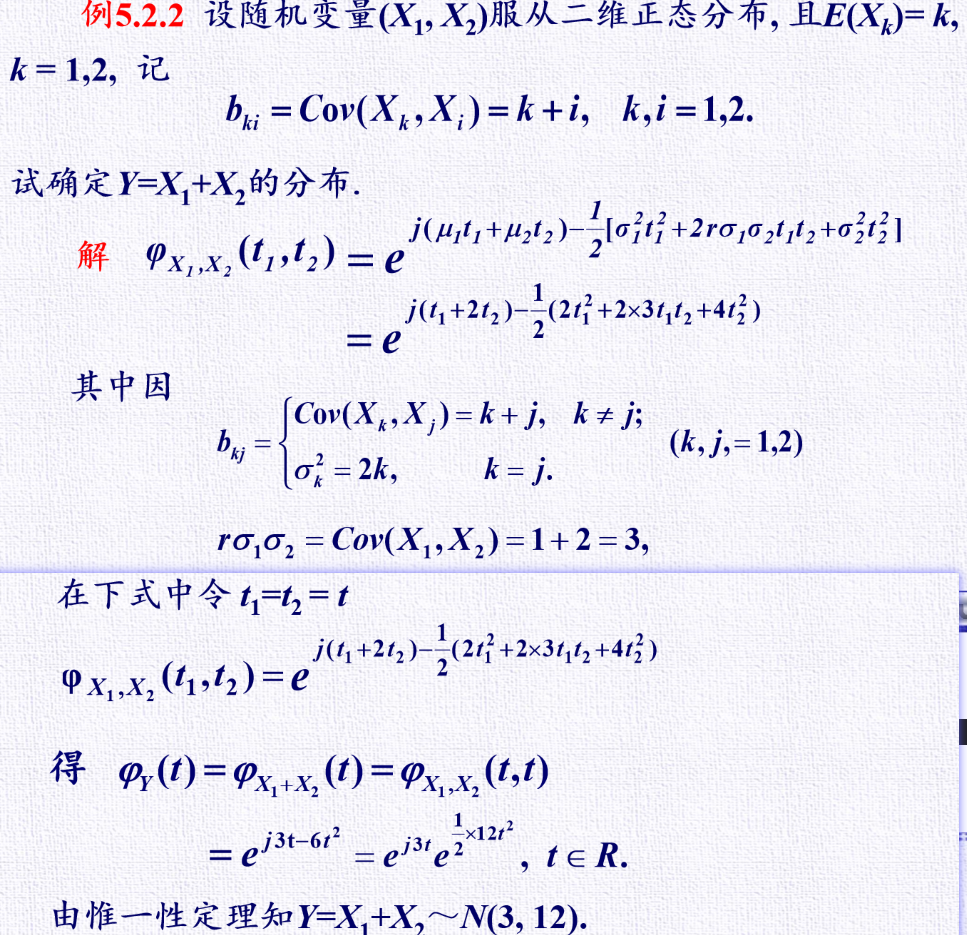 例5.2.2 设随机变量(X₁, X₂)服从二维正态分布, 且E(Xₖ)= k,
k = 1,2, 记
b_{ki} = Cov(X_k, X_i) = k + i, k,i = 1,2.
试确定Y=X₁+X₂的分布.
解 φ_{X₁,X₂}(t₁,t₂) = e^{j(μ₁t₁+μ₂t₂)-\frac{1}{2}[σ₁²t₁²+2rσ₁σ₂t₁t₂+σ₂²t₂²]}
= e^{j(t₁+2t₂)-\frac{1}{2}(2t₁²+2×3t₁t₂+4t₂²)}
其中因
b_{kj} = { Cov(X_k, X_j) = k + j, k ≠ j;
σ_k² = 2k, k = j.
(k, j,= 1,2)
rσ₁σ₂ = Cov(X₁, X₂) = 1 + 2 = 3,
在下式中令 t₁=t₂ = t
φ_{X₁,X₂}(t₁,t₂) = e^{j(t₁+2t₂)-\frac{1}{2}(2t₁²+2×3t₁t₂+4t₂²)}
得 φ_Y(t) = φ_{X₁+X₂}(t) = φ_{X₁,X₂}(t,t)
= e^{j3t-6t²} = e^{j3t}e^{\frac{1}{2}×12t²}, t ∈ R.
由惟一性定理知Y=X₁+X₂～N(3, 12).